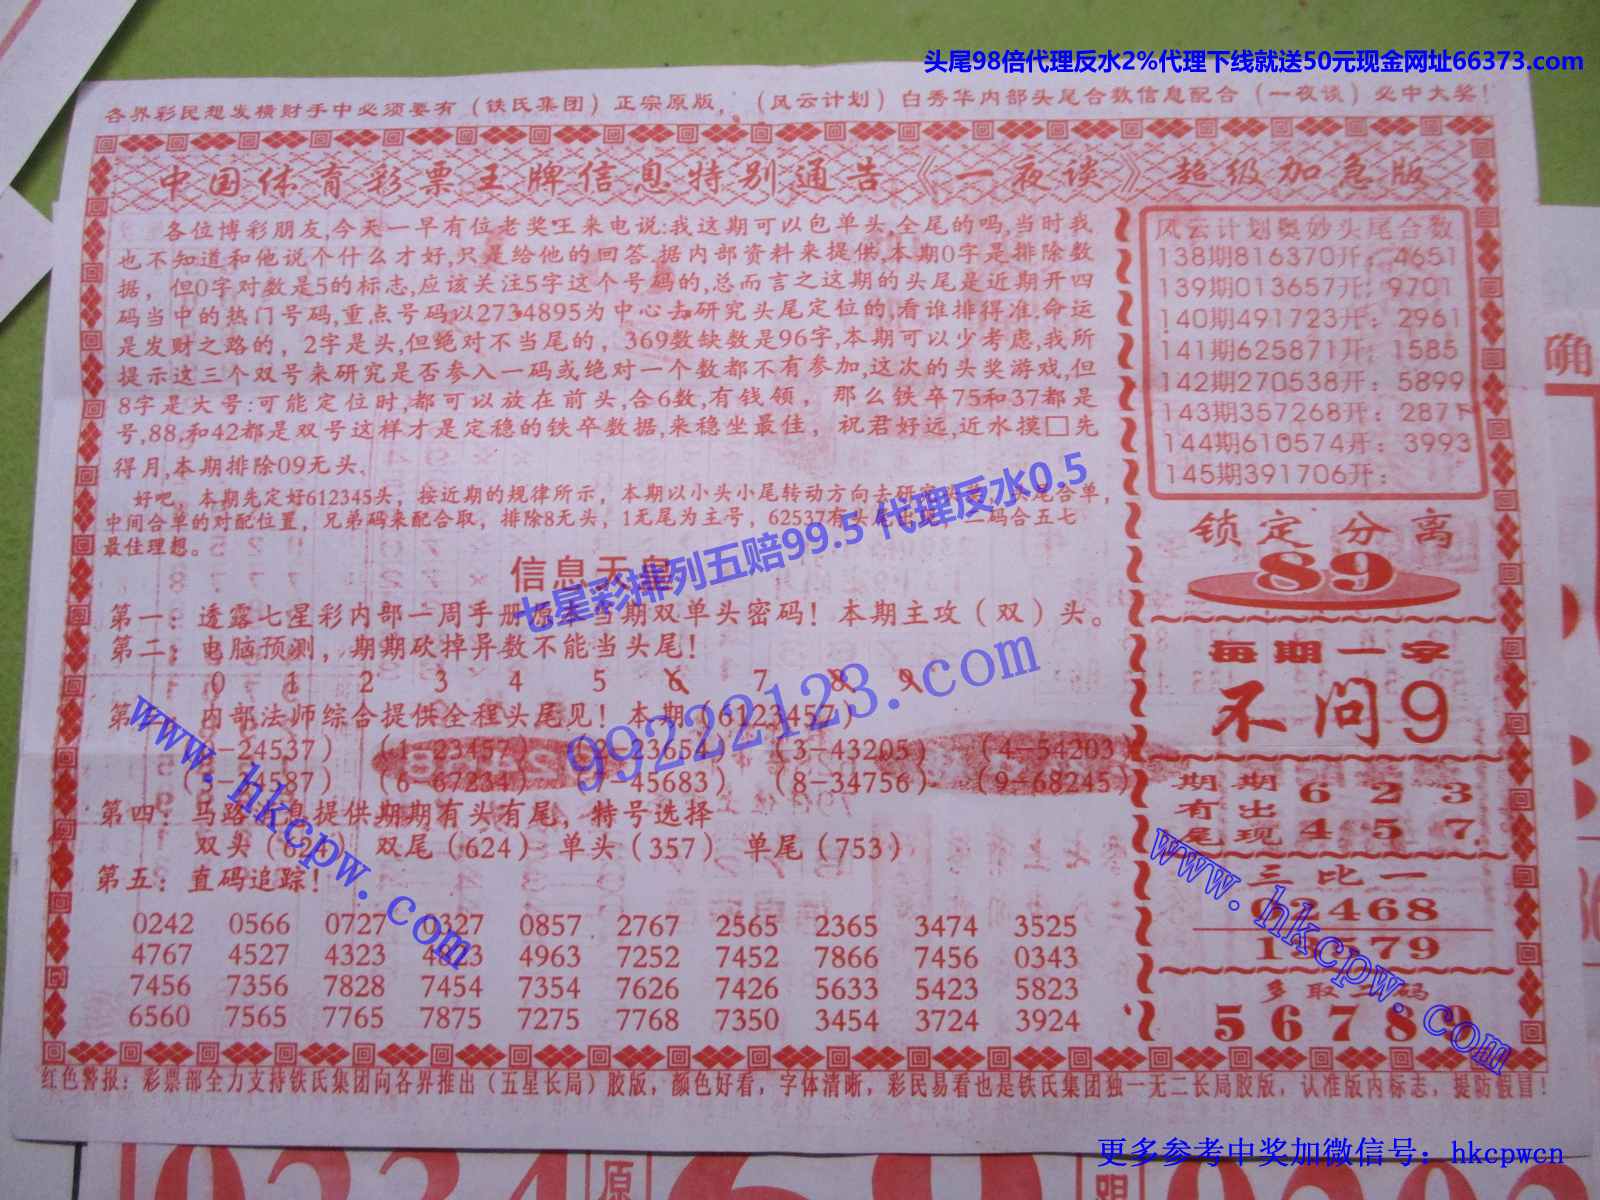 头尾98倍代理反水2%代理下线就送50元现金网址66373.com
各界彩民想发横财手中必须要有（铁氏集团）正宗原版，（风云计划）白秀华内部头尾合数信息配合（一夜谈）必中大奖！
中国体育彩票王牌信息特别通告《一夜谈》超级加急版
各位博彩朋友,今天一早有位老奖王来电说:我这期可以包单头,全尾的吗,当时我
也不知道和他说个什么才好,只是给他的回答.据内部资料来提供,本期0字是排除数
据，但0字对数是5的标志,应该关注5字这个号码的,总而言之这期的头尾是近期开四
码当中的热门号码,重点号码以2734895为中心去研究头尾定位的,看谁排得准.命运
是发财之路的，2字是头,但绝对不当尾的，369数缺数是96字,本期可以少考虑,我所
提示这三个双号来研究是否参入一码或绝对一个数都不有参加,这次的头奖游戏,但
8字是大号:可能定位时,都可以放在前头,合6数,有钱领，那么铁卒75和37都是
号,88,和42都是双号这样才是定稳的铁卒数据,来稳坐最佳，祝君好远,近水摸□先
得月,本期排除09无头、
好吧，本期先定好612345头，按近期的规律所示，本期以小头小尾转动方向去研究 头尾合单，
中间合单的对配位置，兄弟码来配合取，排除8无头，1无尾为主号，62537有头尾出现 二码合五七
最佳理想。
七星彩排列五赔99.5 代理反水0.5
信息天皇
第一：透露七星彩内部一周手册原本当期双单头密码！本期主攻（双）头。
第二：电脑预测，期期砍掉异数不能当头尾！
0 1 2 3 4 5 6 7 8 9
第三：内部法师综合提供全程头尾见！本期（6123457）
-24537） （1-23457） -23654） （3-43205） （4-54203）
587） （6-67234） -45683） （8-34756） （9-68245）
99222123.com
www.hkcpw.com
第四：马路消息提供期期有头有尾，特号选择
双头（6 双尾（624） 单头（357） 单尾（753）
第五：直码追踪！
0242 0566 0727 0327 0857 2767 2565 2365 3474 3525
4767 4527 4323 4823 4963 7252 7452 7866 7456 0343
7456 7356 7828 7454 7354 7626 7426 5633 5423 5823
6560 7565 7765 7875 7275 7768 7350 3454 3724 3924
风云计划奥妙头尾合数
138期816370开：4651
139期013657开：9701
140期491723开：2961
141期625871开：1585
142期270538开：5899
143期357268开：2871
144期610574开：3993
145期391706开：
锁定分离
89
每期一字
不问9
期期 6 2 3
有出
尾现 4 5 7.
三比一
02468
13579
www.hkcpw.com
多取二码
56789
红色警报：彩票部全力支持铁氏集团向各界推出（五星长局）胶版，颜色好看，字体清晰，彩民易看也是铁氏集团独一无二长局胶版，认准版内标志，提防假冒！
更多参考中奖加微信号：hkcpwcn
确
原